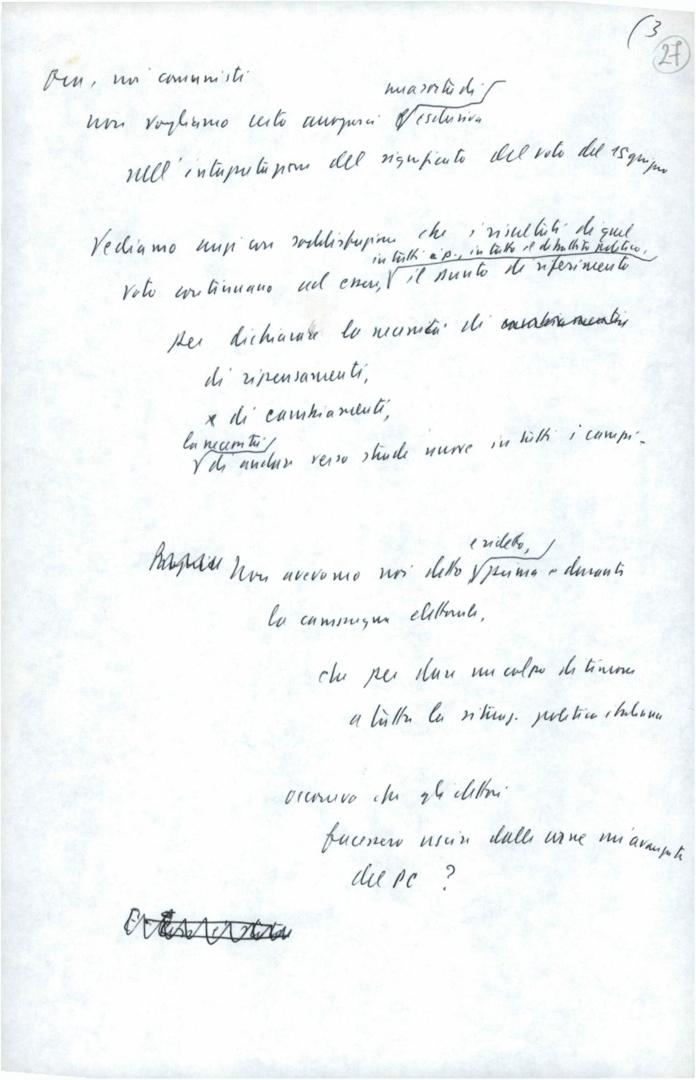 (3
27
Ora, noi comunisti
una sorta di
non vogliamo certo arrogarci √ esclusiva
sull'interpretazione del significato del voto del 15 giugno
Vediamo anzi con soddisfazione che i risultati di quel
in tutti i p., in tutto il dibattito politico,
voto continuano ad essere, √ il punto di riferimento
per dichiarare la necessità di cambiamenti
di ripensamenti,
di cambiamenti,
la necessità
√ di andare verso strade nuove in tutti i campi.
e ridetto,
Non avevamo noi detto √ prima e durante
la campagna elettorale,
che per dare un colpo di timone
a tutta la situaz. politica italiana
occorreva che gli elettori
facessero uscire dalle urne un'avanzata
del PC ?